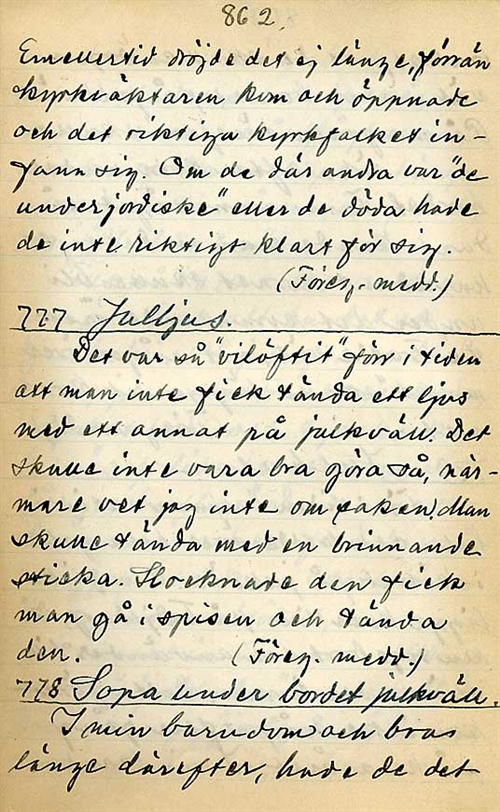 862.
Emellertid dröjde det ej länge, förrän
kyrkväktaren kom och öppnade
och det riktiga kyrkfolket in-
fann sig. Om de där andra var "de
underjordiske" eller de döda hade
de inte riktigt klart för sig.
(Föreg. medd.)
777 Julljus.
Det var så "vilöftit" förr i tiden
att man inte fick tända ett ljus
med ett annat på julkväll. Det
skulle inte vara bra göra så, när-
mare vet jag inte om saken. Man
skulle tända med en brinnande
sticka. Slocknade den fick
man gå i spisen och tända
den. (Föreg. medd.)
778 Sopa under bordet julkväll.
I min barndom och bra
länge därefter, hade de det